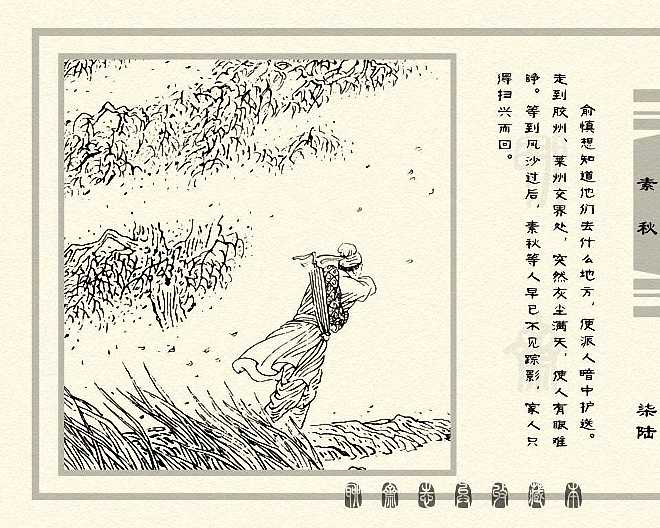 俞慎想知道他们去什么地方，便派人暗中护送。
走到胶州、莱州交界处，突然灰尘满天，使人有眼难
睁。等到风沙过后，素秋等人早已不见踪影，家人只
得扫兴而回。
素秋
柒陆